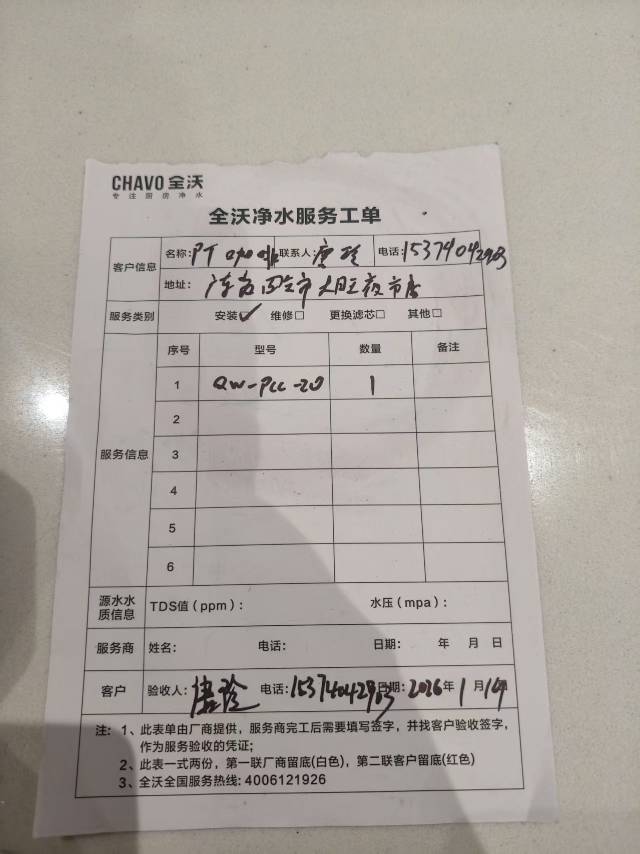 CHAVO 全沃
专注厨房净水
全沃净水服务工单
客户信息 名称: PT咖啡 联系人: 唐玲 电话: 15374042903
地址: 广东省四会市大旺夜市店
服务类别 安装☑ 维修□ 更换滤芯□ 其他□
服务信息 序号 型号 数量 备注
1 QW-PCC-20 1
2
3
4
5
6
源水水质信息 TDS值（ppm）: 水压（mpa）:
服务商 姓名: 电话: 日期: 年 月 日
客户 验收人: 唐玲 电话: 15374042903 日期: 2026年1月14日
注: 1、此表单由厂商提供，服务商完工后需要填写签字，并找客户验收签字，
作为服务验收的凭证;
2、此表一式两份，第一联厂商留底(白色)，第二联客户留底(红色)
3、全沃全国服务热线: 4006121926